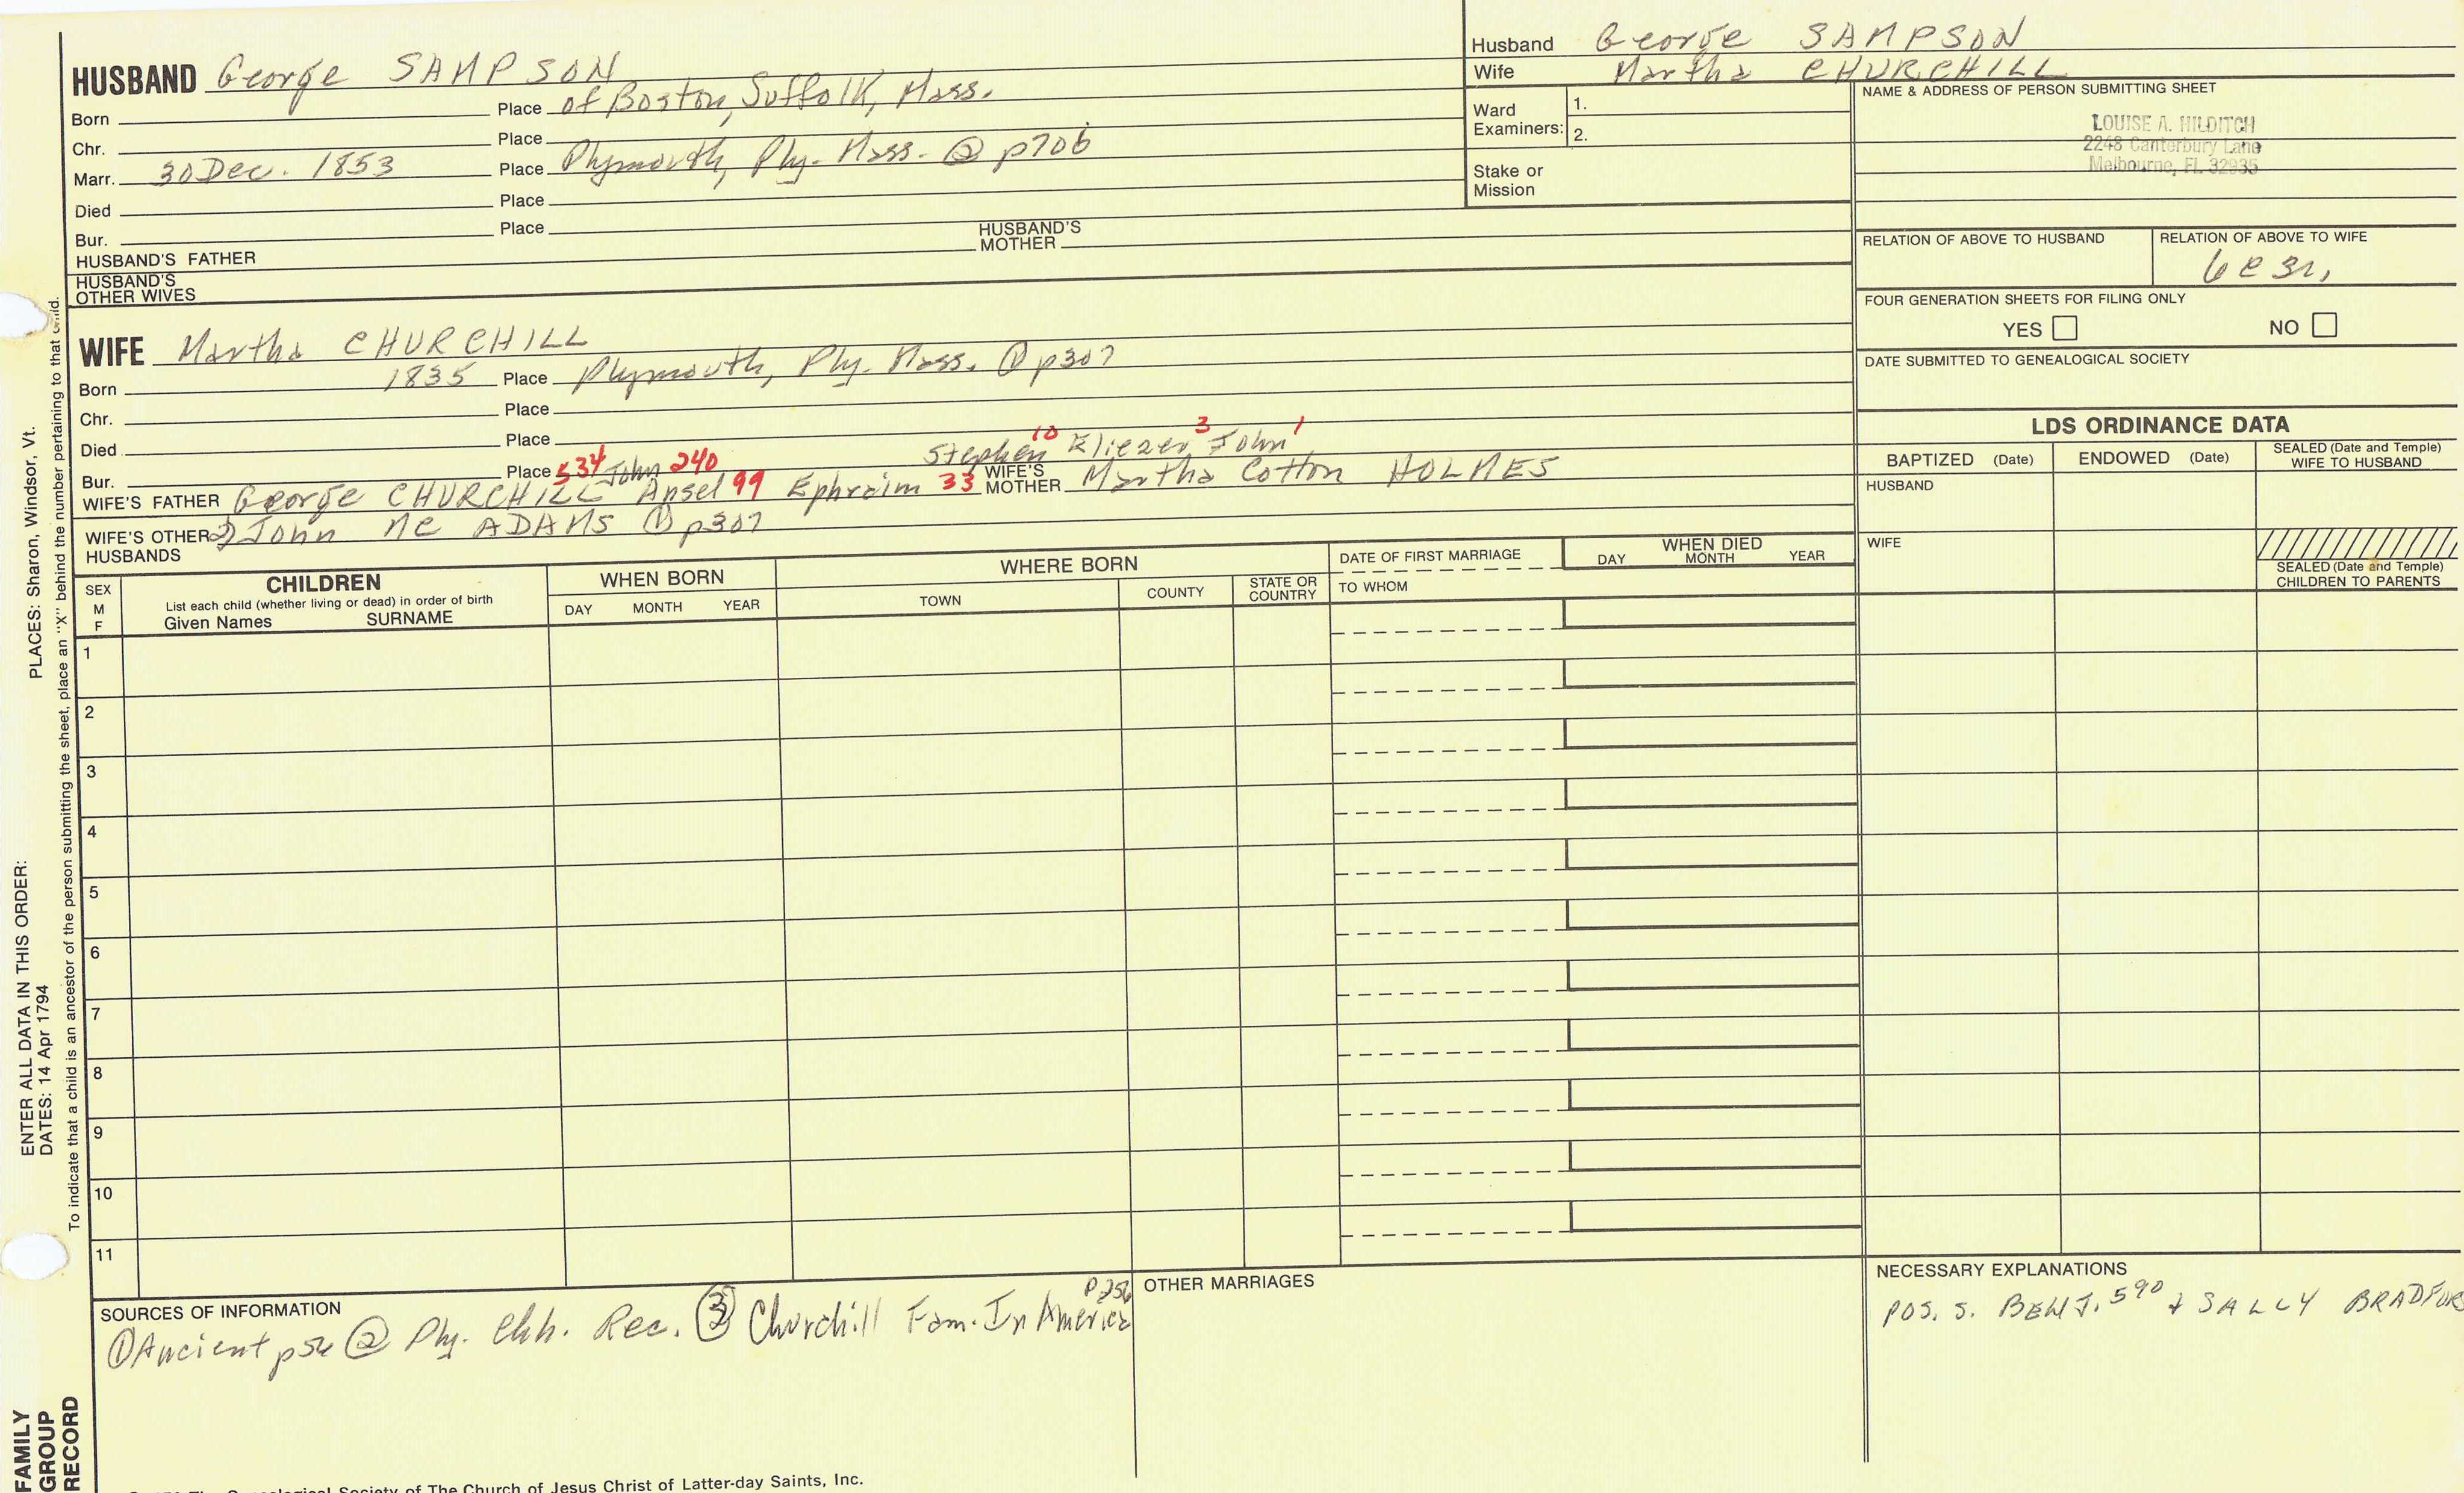 HUSBAND George SAMPSON
Born Place of Boston, Suffolk, Mass.
Chr. Place
Marr. 30 Dec. 1853 Place Plymouth, Ply. Mass. @ p706
Died Place
Bur. Place
HUSBAND'S FATHER HUSBAND'S MOTHER
HUSBAND'S OTHER WIVES
Husband George SAMPSON
Wife Martha CHURCHILL
Ward Examiners: 1.
2.
Stake or Mission
NAME & ADDRESS OF PERSON SUBMITTING SHEET
LOUISE A. HILDITCH
2248 Canterbury Lane
Melbourne, FL 32935
RELATION OF ABOVE TO HUSBAND
RELATION OF ABOVE TO WIFE
6C3R,
FOUR GENERATION SHEETS FOR FILING ONLY
YES NO
DATE SUBMITTED TO GENEALOGICAL SOCIETY
WIFE Martha CHURCHILL
Born 1835 Place Plymouth, Ply. Mass. ① p307
Chr. Place
Died Place
Stephen 10 Eliezer 3 John 1
Bur. Place 534 John 240
WIFE'S FATHER George CHURCHILL Ansel 99 Ephraim 33 WIFE'S MOTHER Martha Cotton HOLMES
WIFE'S OTHER HUSBANDS 2) John Mc ADAMS ① p307
LDS ORDINANCE DATA
BAPTIZED (Date) ENDOWED (Date) SEALED (Date and Temple) WIFE TO HUSBAND
HUSBAND
WIFE
SEALED (Date and Temple) CHILDREN TO PARENTS
SEX M F
CHILDREN
List each child (whether living or dead) in order of birth
Given Names SURNAME
WHEN BORN
DAY MONTH YEAR
WHERE BORN
TOWN COUNTY STATE OR COUNTRY
DATE OF FIRST MARRIAGE
TO WHOM
WHEN DIED
DAY MONTH YEAR
1
2
3
4
5
6
7
8
9
10
11
SOURCES OF INFORMATION
① Ancient p54 ② Ply. Chh. Rec. ③ Churchill Fam. In America p256
OTHER MARRIAGES
NECESSARY EXPLANATIONS
POS. S. BENJ. 590 & SALLY BRADFOR
ENTER ALL DATA IN THIS ORDER:
DATES: 14 Apr 1794
PLACES: Sharon, Windsnsor, Vt.
To indicate that a child is an ancestor of the person submitting the sheet, place an "X" behind the number pertaining to that child.
FAMILY GROUP RECORD
Society of The Church of Jesus Christ of Latter-day Saints, Inc.